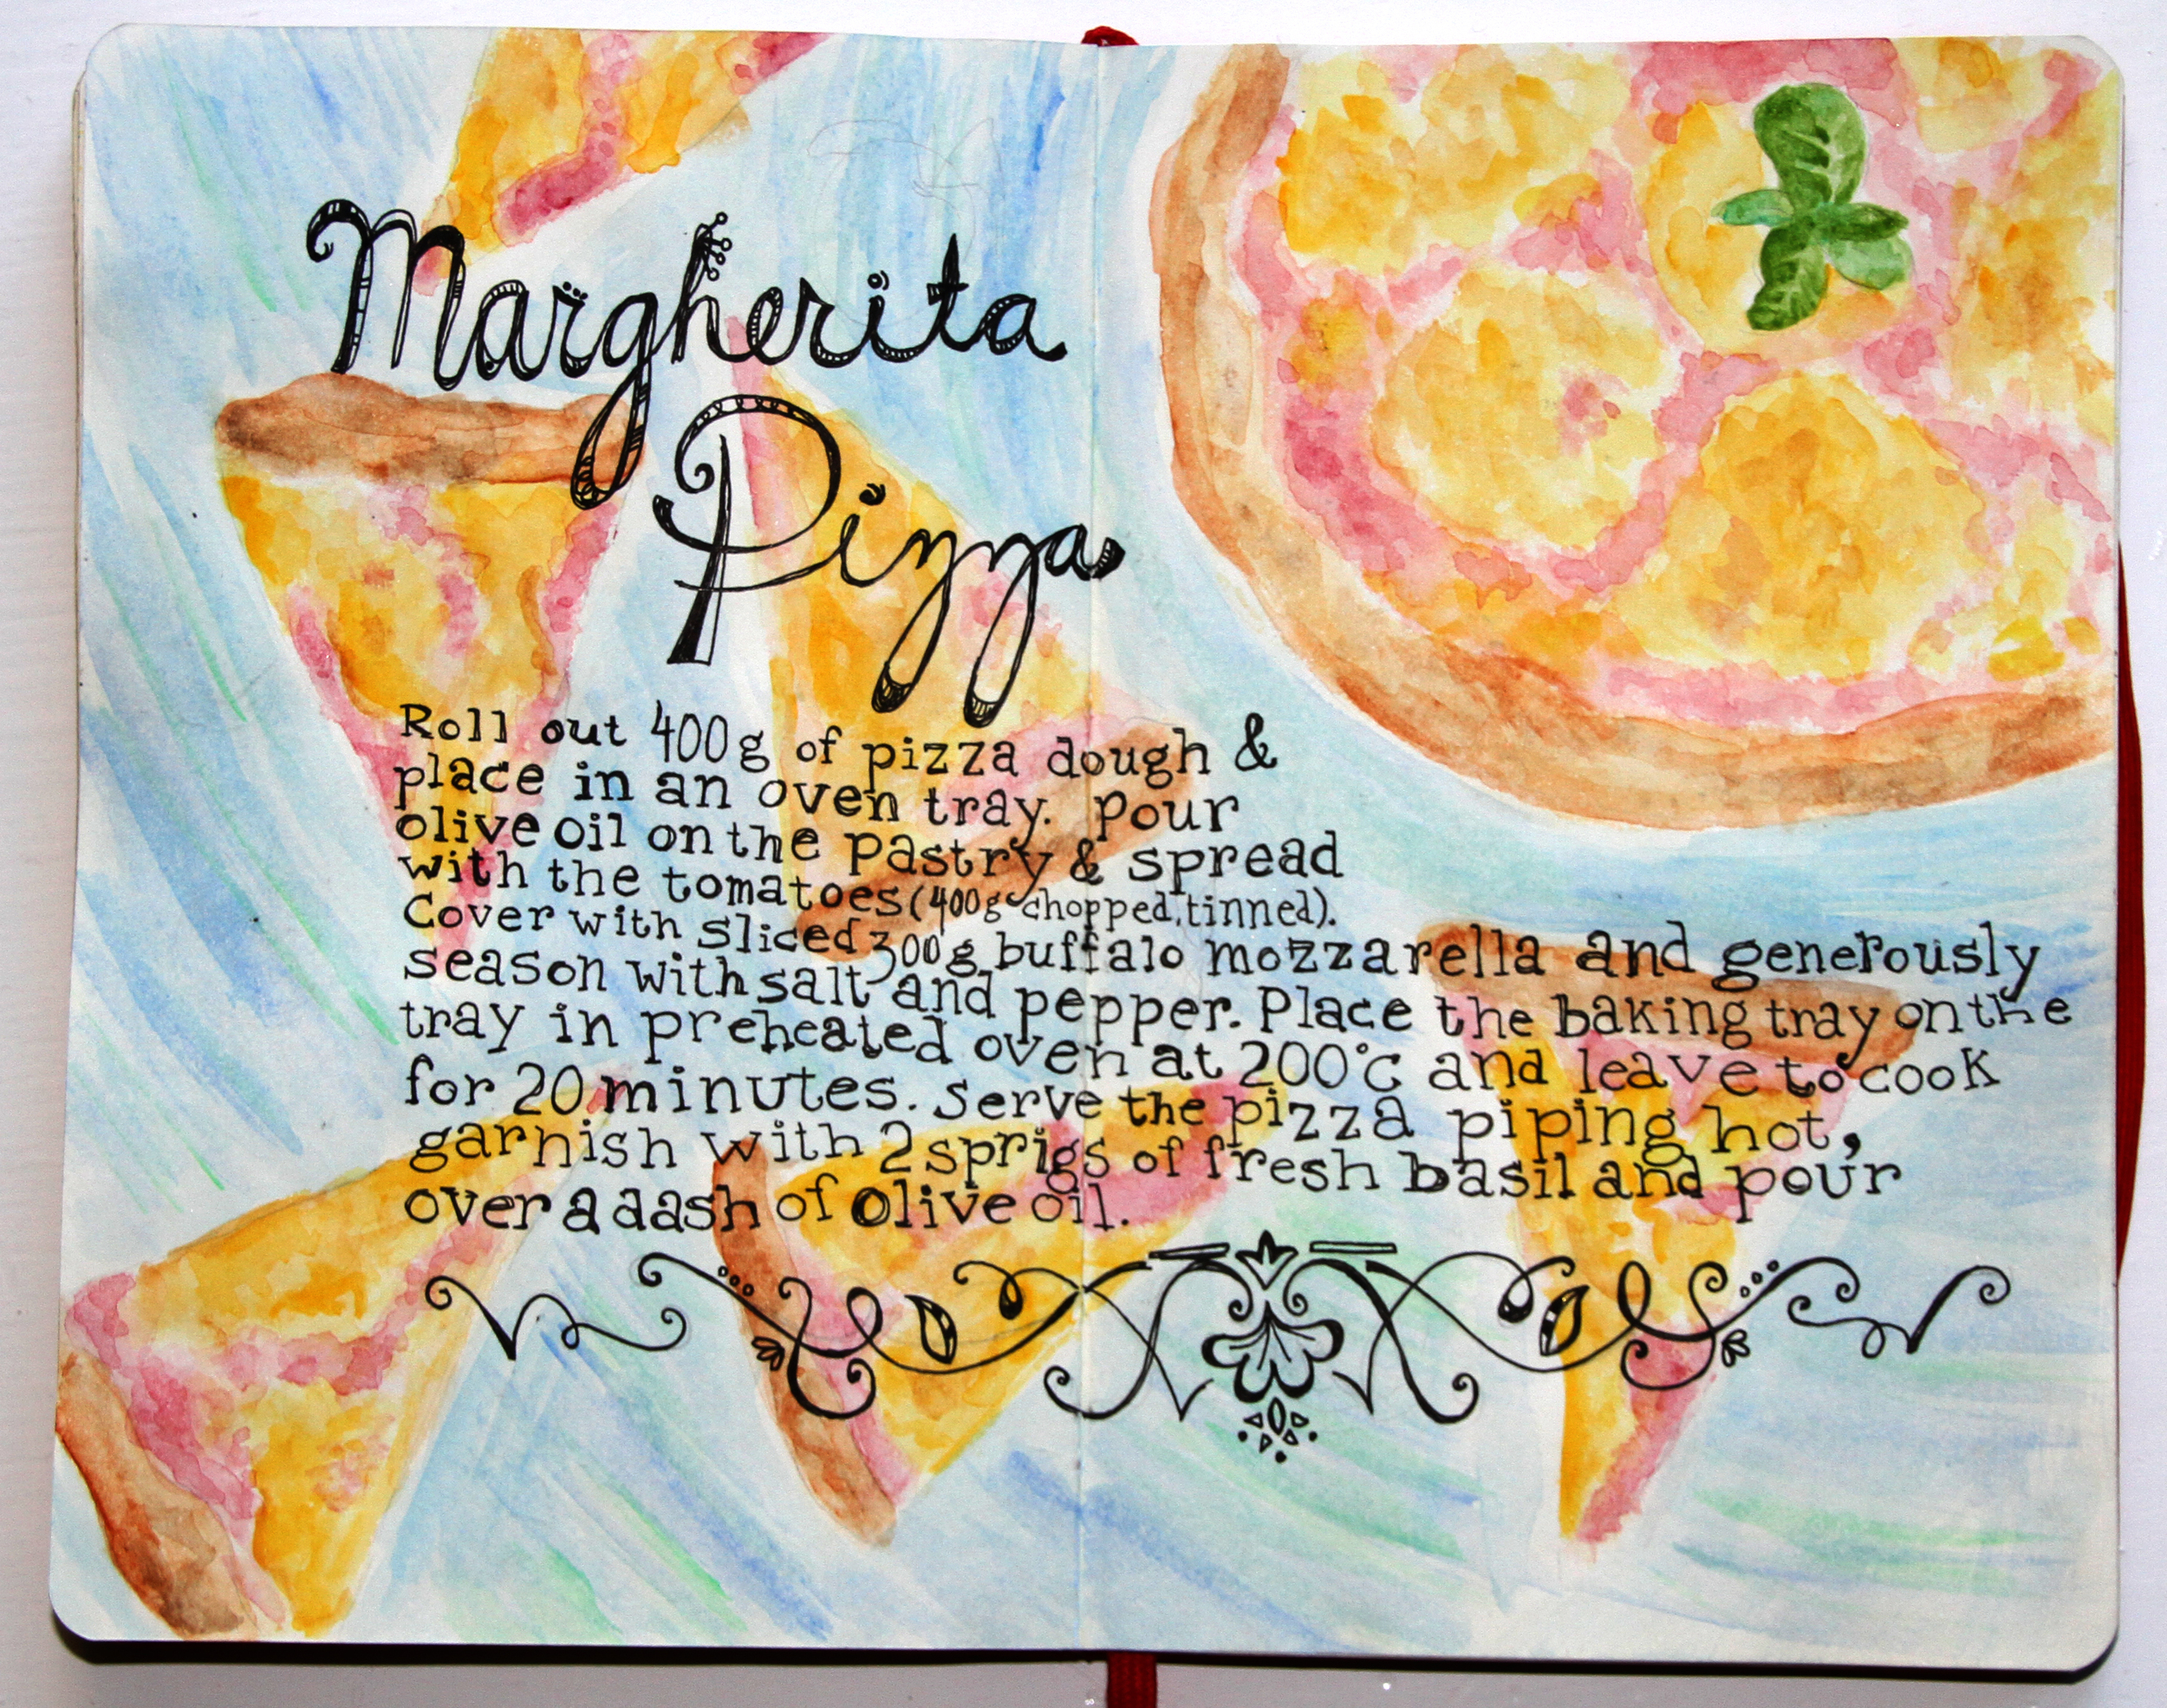 Margherita
Pizza
Roll out 400g of pizza dough &
place in an oven tray. Pour
olive oil on the pastry & spread
with the tomatoes (400g chopped, tinned).
Cover with sliced 300g buffalo mozzarella and generously
season with salt and pepper. Place the baking tray on the
tray in preheated oven at 200°C and leave to cook
for 20 minutes. Serve the pizza piping hot,
garnish with 2 sprigs of fresh basil and pour
over a dash of olive oil.